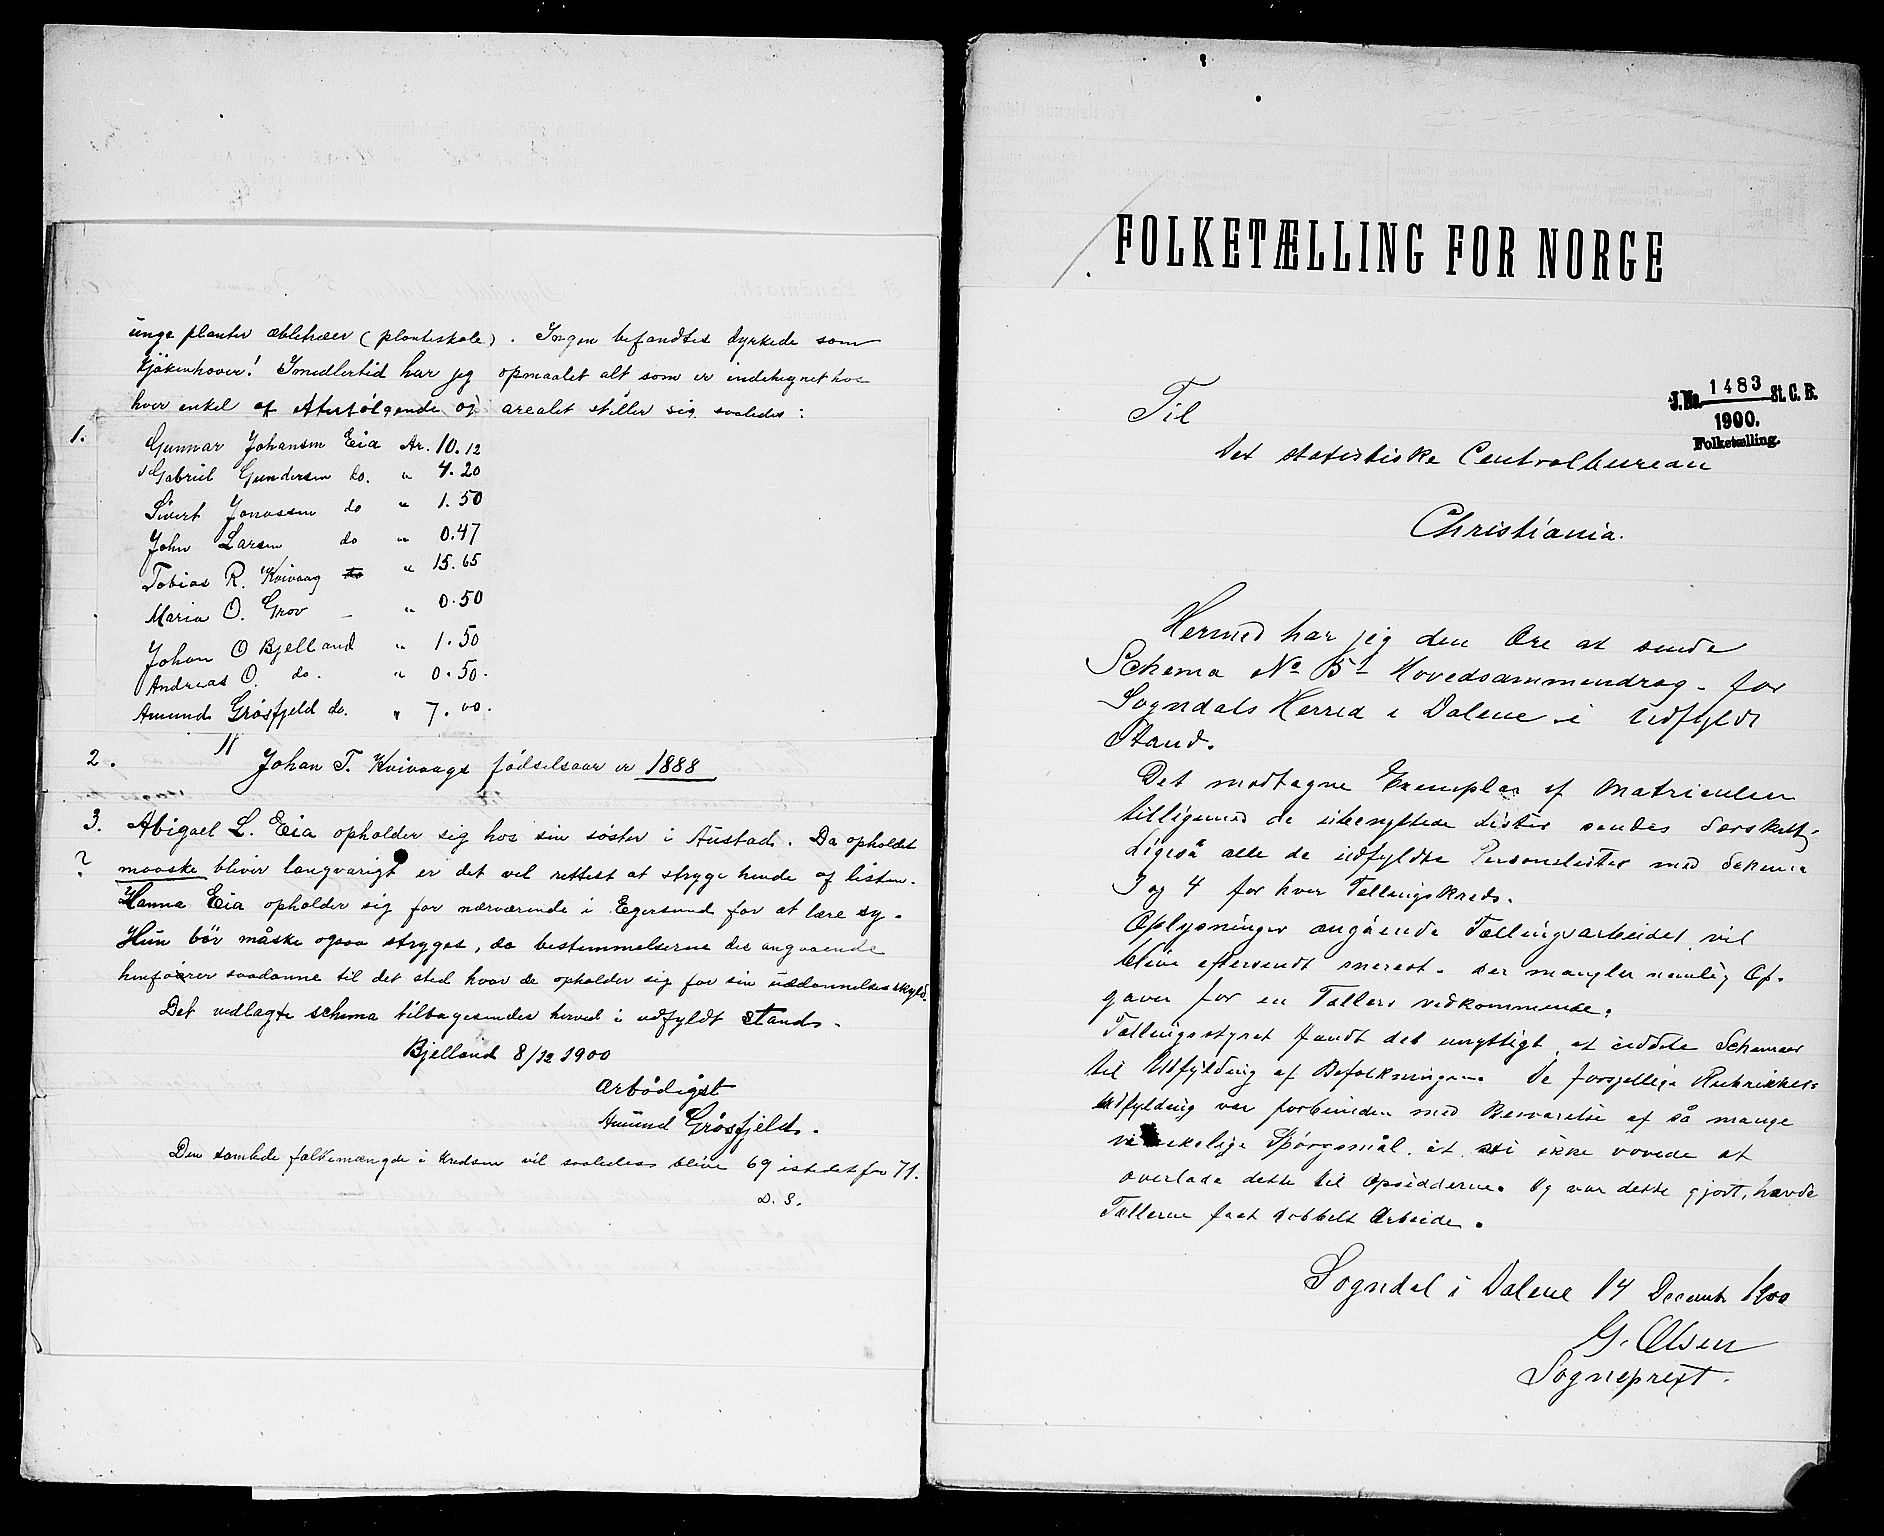 unge planter æbletræer (planteskole). Ingen befandtes dyrkede som
kjøkenhaver! Imedlertid har jeg opmaalet alt som er indehegnet hos
hver enkel af efterfølgende og arealet stiller sig saaledes:
1. Gunnar Johansen Eia Ar. 10.12
Gabriel Gundersen do. " 4.20
Sivert Jonassen do " 1.50
John Larsen do " 0.47
Tobias R. Kvivaag do " 15.65
Maria O. Grov - " 0.50
Johan O Bjelland " 1.50
Andreas O. do. " 0.50.
Amund Grøsfjeld do. " 7.00.
2. Johan T. Kvivaags fødselsaar er 1888
3. Abigael L. Eia opholder sig hos sin søster i Austad. Da opholdet
? maaske bliver langvarigt er det vel rettest at stryge hende af listen.
Hanna Eia opholder sig for nærværende i Egersund for at lære sy.
Hun bør måske ogsaa stryges, da bestemmelserne der angaaende
henfører saadanne til det sted hvor de opholder sig for sin uddannelses skyld.
Det vedlagte schema tilbagesendes herved i udfyldt stand.
Bjelland 8/12 1900
Ærbødigst
Amund Grøsfjeld.
Den samlede folkemængde i kredsen vil saaledes blive 69 istedetfor 71.
D. S.
FOLKETÆLLING FOR NORGE
J.No. 1483 St. C. B.
1900.
Folketælling.
Til
Det statistiske Centralbureau
Christiania.
Hermed har jeg den Ære at sende
Schema No 5 - Hovedsammendrag - for
Sogndals Herred i Dalene i Udfyldt
Stand.
Det modtagne Exemplar af Matriculen
tilligemed de ubenyttede Lister sendes særskilt,
Ligeså alle de udfyldte Personlister med Schema
3 og 4 for hver Tællingskreds.
Oplysninger angående Tællingsarbeidet vil
blive eftersendt snarest. Der mangler nemlig Op-
gaver for en Tællers vedkommende.
Tællingsstyret fandt det unyttigt at uddele Schemaer
til Udfylding af Befolkningen. De forskjellige Rubrikkers
Udfylding var forbunden med Besvarelse af så mange
vanskelige Spørgsmål, at vi ikke vovede at
overlade dette til Opsidderne. Og var dette gjort, havde
Tællerne faat dobbelt Arbeide.
Sogndal i Dalene 14 Decemb. 1900
G. Olsen
Sogneprest.